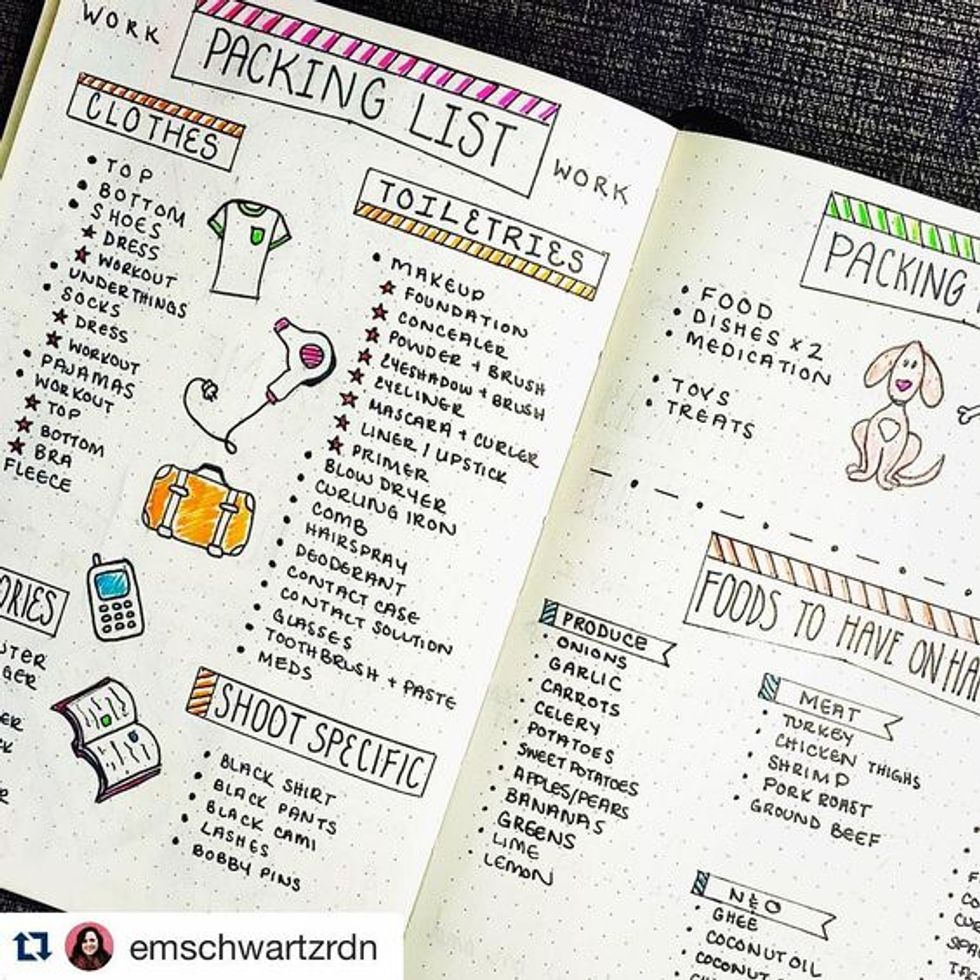 WORK
PACKING LIST
WORK
CLOTHES
TOP
BOTTOM
SHOES
DRESS
WORKOUT
UNDERTHINGS
SOCKS
DRESS
WORKOUT
PAJAMAS
WORKOUT
TOP
BOTTOM
BRA
FLEECE
TOILETRIES
MAKEUP
FOUNDATION
CONCEALER
POWDER + BRUSH
EYESHADOW + BRUSH
EYELINER
MASCARA + CURLER
LINER / LIPSTICK
PRIMER
BLOW DRYER
CURLING IRON
COMB
HAIRSPRAY
DEODERANT
CONTACT CASE
CONTACT SOLUTION
GLASSES
TOOTHBRUSH + PASTE
MEDS
ORIES
UTER
GER
ER
SHOOT SPECIFIC
BLACK SHIRT
BLACK PANTS
BLACK CAMI
LASHES
BOBBY PINS
PACKING
FOOD
DISHES x 2
MEDICATION
TOYS
TREATS
FOODS TO HAVE ON HA
PRODUCE
ONIONS
GARLIC
CARROTS
CELERY
POTATOES
SWEET POTATOES
APPLES/PEARS
BANANAS
GREENS
LIME
LEMON
MEAT
TURKEY
CHICKEN THIGHS
SHRIMP
PORK ROAST
GROUND BEEF
N&O
GHEE
COCONUT OIL
COCONUT
emschwartzrdn